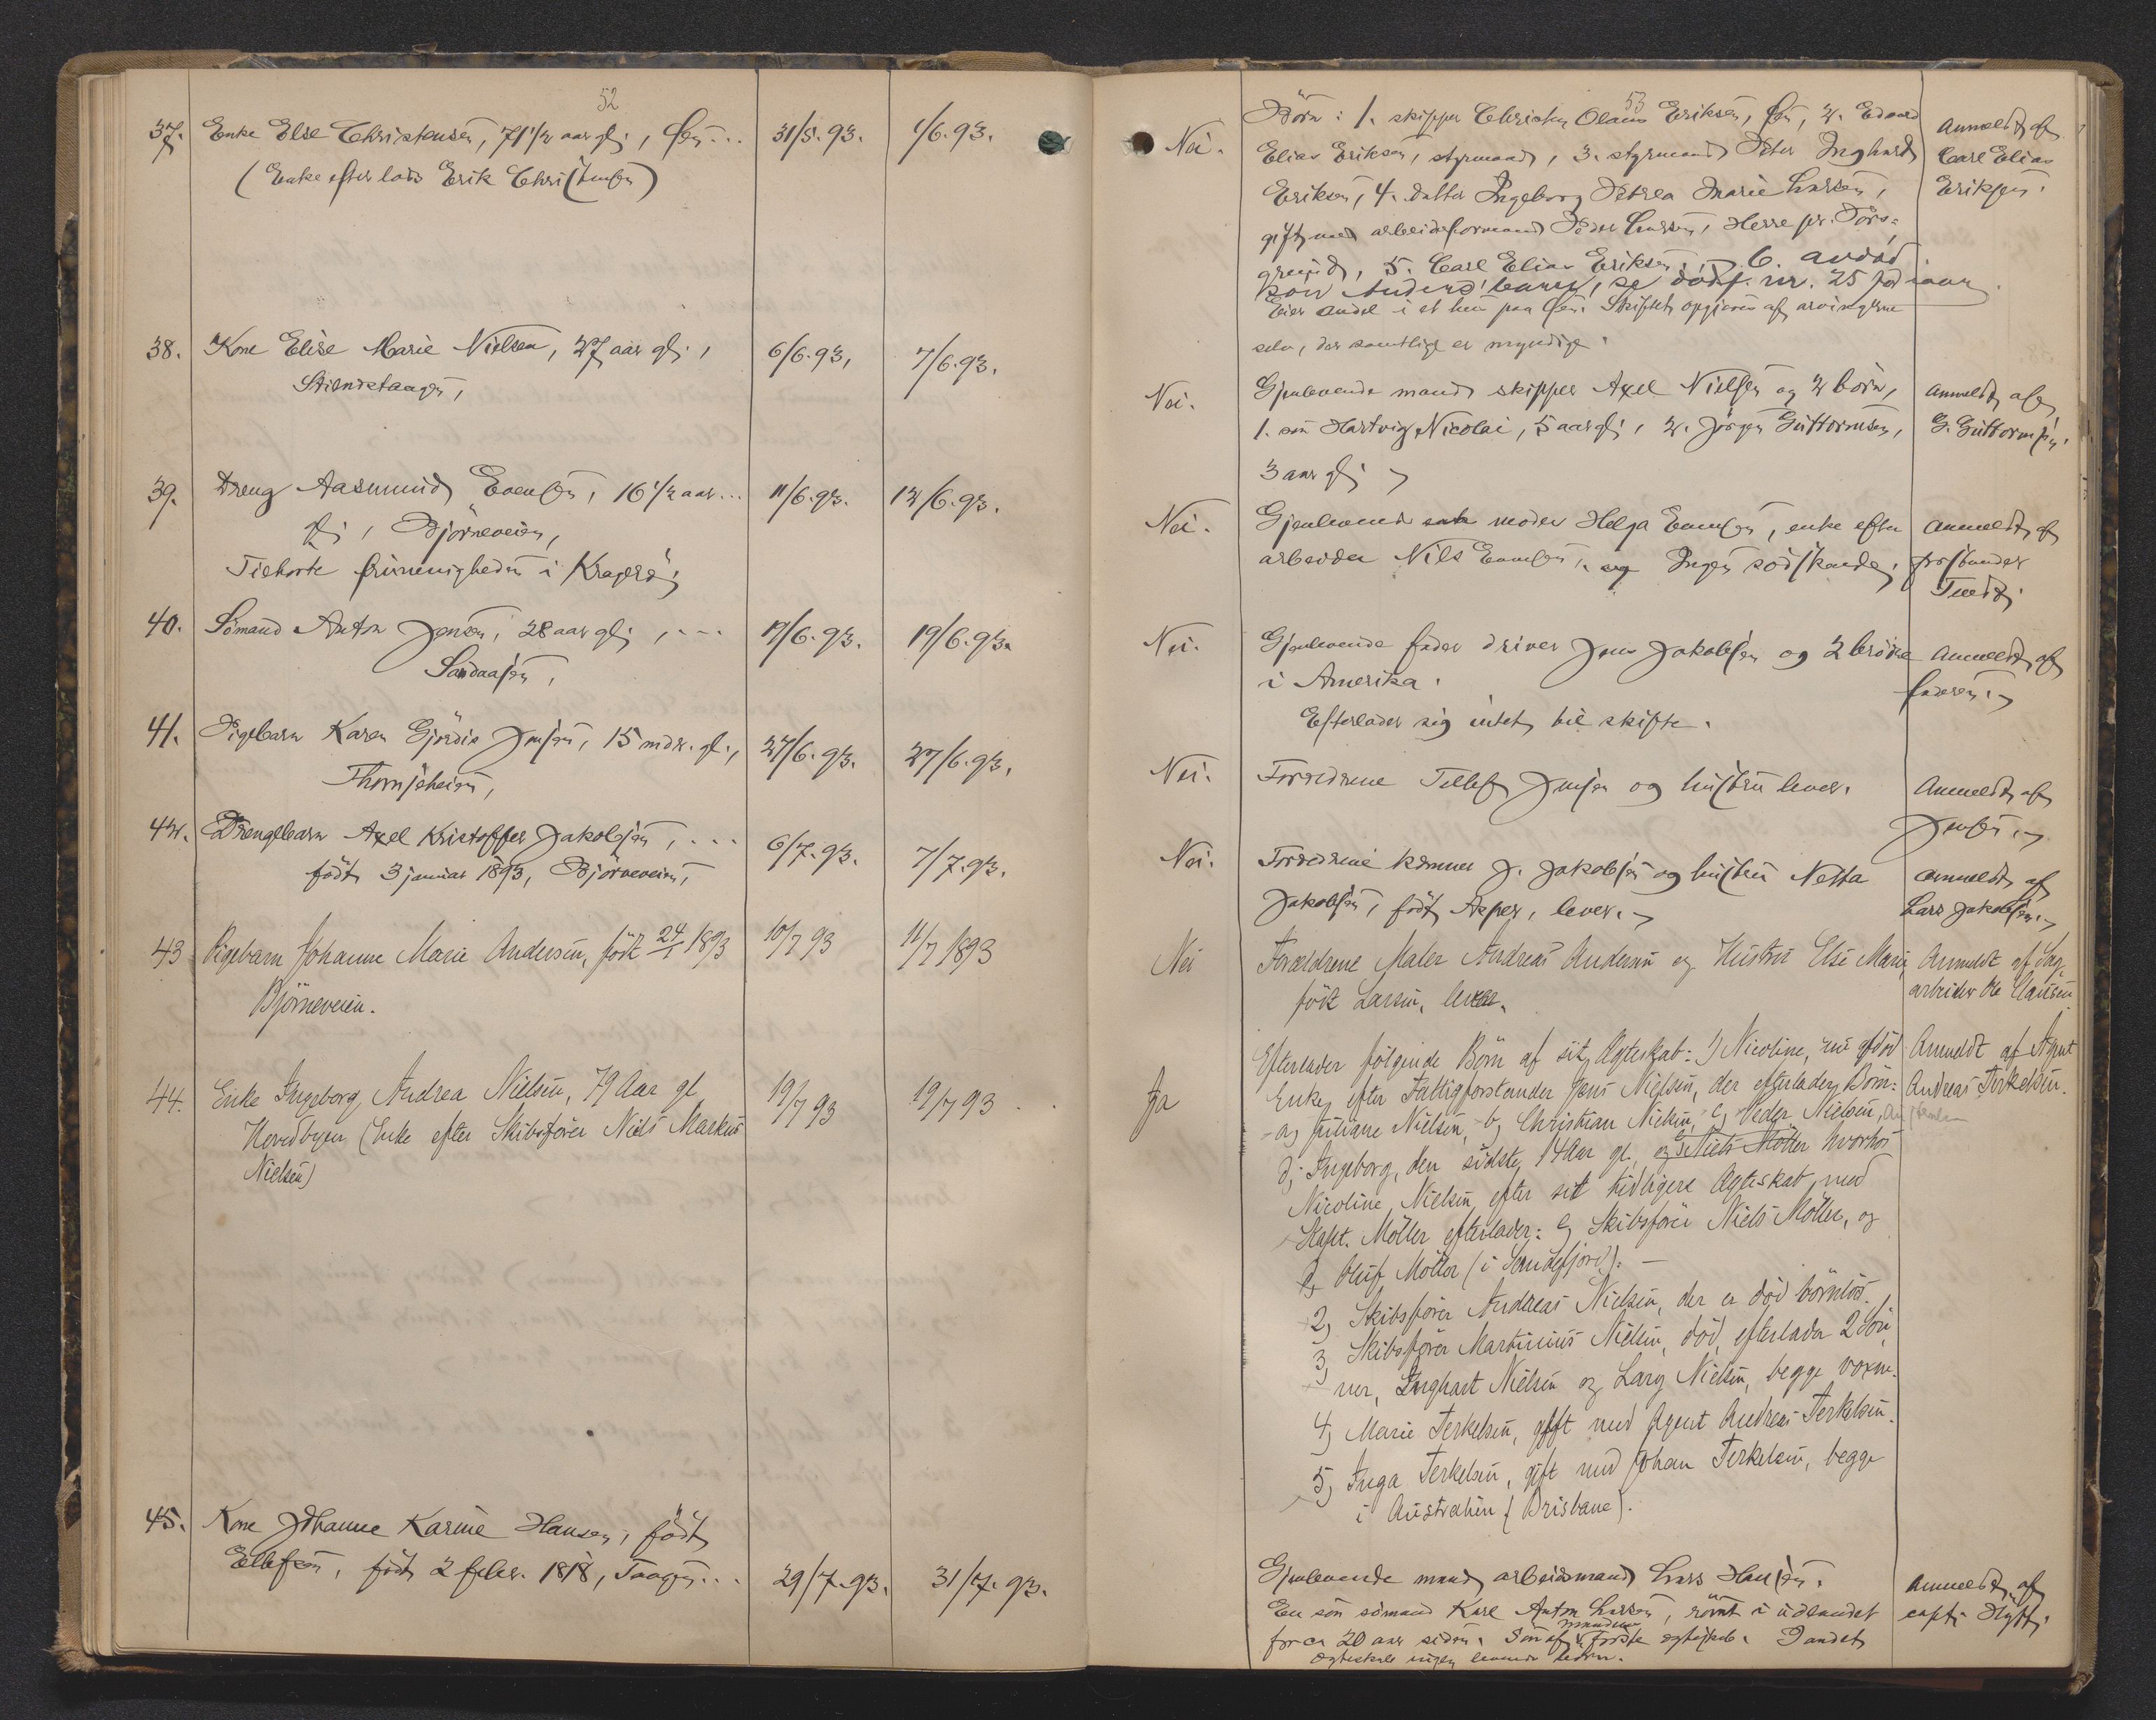 52
37. Enke Else Christensen, 71 1/2 aar gl., Øen... 31/5.93. 1/6.93.
(Enke efter lods Erik Christensen)
38. Kone Elise Marie Nielsen, 27 aar gl., 6/6.93, 7/6.93.
Stilnestangen,
39. Dreng Aasmund Evensen, 16 1/2 aar... 11/6.93. 12/6.93.
gl., Bjørneveien,
Tilhørte frimenigheden i Kragerø,
40. Sømand Anton Jensen, 28 aar gl., ... 17/6.93. 19/6.93.
Sandaasen,
41. Pigebarn Karen Gjørdis Jensen, 15 mdr. gl., 27/6.93. 27/6.93.
42. Drengebarn Axel Kristoffer Jakobsen, ... 6/7.93. 7/7.93.
født 3 januar 1893, Bjørneveien,
43 Pigebarn Johanne Marie Andersen, født 24/1 1893 10/7 93 11/7 1893
Bjørneveien.
44. Enke Ingeborg Andrea Nielsen, 79 Aar gl 19/7 93 19/7 93
Hovedbyen (Enke efter Skibsfører Niels Markus
Nielsen)
45. Kone Johanne Karine Hansen, født
Ellefsen, født 2 febr. 1818, Taagen... 29/7.93. 31/7.93.
53
Nei. Børn: 1. skipper Christen Olaus Eriksen, Øen, 2. Edvard
Elias Eriksen, styrmand, 3. styrmand Peter Inghard
Eriksen, 4. datter Ingeborg Petrea Marie Larsen,
gift med arbeidsformand Peder Larsen, Herre pr. Pors=
grund, 5. Carl Elias Eriksen. 6. avdød
søn Anders' barn, se dødsf. nr. 25 for iaar
Eier andel i et hus paa Øen. Skiftet opgjøres af arvingerne
selv, der samtlige er myndige.
Anmeldt af
Carl Elias
Eriksen.
Nei. Gjenlevende mand skipper Axel Nielsen og 2 børn,
1. søn Hartvig Nicolai, 5 aar gl., 2. Jørgen Guttormsen,
3 aar gl.
Anmeldt af
G. Guttormsen.
Nei. Gjenlevende moder Helga Evensen, enke efter
arbeider Nils Evensen, Ingen sødskende.
Anmeldt af
forstander
Tvedt.
Nei. Gjenlevende fader driver Jens Jakobsen og 2 brødre
i Amerika.
Efterlader sig intet til skifte.
Anmeldt af
faderen.
Nei. Forældrene Tellef Jensen og hustru lever.
Anmeldt af
Jensen.
Nei. Forældrene kømner J. Jakobsen og hustru Netta
Jakobsen, født Asper, lever.
Anmeldt af
Lars Jakobsen.
Nei Forældrene Maler Andreas Andersen og Hustru Else Marie
født Larsen, lever.
Anmeldt af Dag
arbeider Ole Clausen
Ja Efterlader følgende Børn af sit Ægteskab: 1) Nicoline, nu afdød
Enke efter Fattigforstander Jens Nielsen, der efterlader Børn:
a) Juliane Nielsen, b) Christian Nielsen, c) Peder Nielsen,
d) Ingeborg, den sidste 14 Aar gl. og e) Niels Møller hvorhos
Nicoline Nielsen efter sit tidligere Ægteskab med
Kapt. Møller efterlader: e) Skibsfører Niels Møller, og
f) Oluf Møller (i Sandefjord). —
2) Skibsfører Andreas Nielsen, der er død børnløs.
3) Skibsfører Martinius Nielsen, død, efterlader 2 Søn
ner, Inghart Nielsen og Lars Nielsen, begge voxne.
4) Marie Terkelsen, gift med Agent Andreas Terkelsen.
5) Inga Terkelsen, gift med Johan Terkelsen, begge
i Australien (Brisbane).
Anmeldt af Agent
Andreas Terkelsen.
Gjenlevende mand, arbeidsmand Lars Hansen.
En søn sømand Karl Anton Larsen, rømt i udlandet
for ca 20 aar siden. Søn af mandens første ægteskab. I andet
ægteskab ingen levende børn.
Anmeldt af
capt.